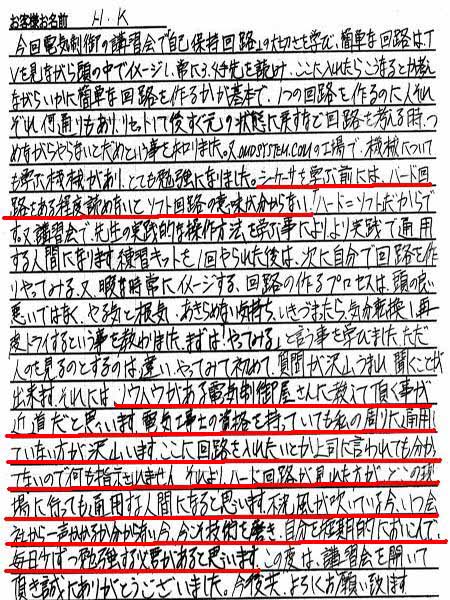 お客様お名前 H.K
今回電気制御の講習会で自己保持回路」の大切さを学び、簡単な回路はT
Vを見ながら頭の中でイメージし、常に3、4手先を読み、ここに入れたらこうなるとか考え
ながらいかに簡単な回路を作るかが基本で、1つの回路を作るのに人それ
ぞれ何通りもあり、リセットして後すぐ元の状態に戻すなど回路を考える時、つ
めながらやらないとだめという事を知りました。又OMDSYSTEM.COMの工場で、機械につい
ても学ぶ機械があり、とても勉強になりました。シーケンサを学ぶ前には、ハード回
路をある程度読めないとソフト回路の意味が分からない「ハード=ソフトだからで
す。又講習会で、先生の実践的な操作方法を学ぶ事により、より実践で通用
する人間になります。練習キットを1回やられた後は、次に自分で回路を作
りやってみる。又、暇な時常にイメージする。回路の作るプロセスは、頭の良い
悪いではなく、やる気と根気、あきらめない気持ち、いきづまったら、気分転換し再
度トライするという事を教わりました。まずは「やってみる」と言う事を学びました。ただ
人のを見るのとするのは違い、やってみて初めて、質問が沢山うまれ聞くことが
出来ます。それには、ノウハウがある電気制御屋さんに教えて頂く事が
近道だと思います。電気工事士の資格を持っていても私の周りに通用し
ていない方が沢山います。ここに回路を入れたいとか上司に言われても分か
てないので何も指示されません。それより、ハード回路が見れた方が、どこの現
場に行っても通用な人間になると思います。不況風が吹いている今、いつ会
社から一声かかるか分からない今、今こそ技術を磨き、自分を短期的においこんで、
毎日少ずつ勉強する必要があると思います。この度は、講習会を開いて
頂き誠にありがとうございました。今後共、よろしくお願い致します